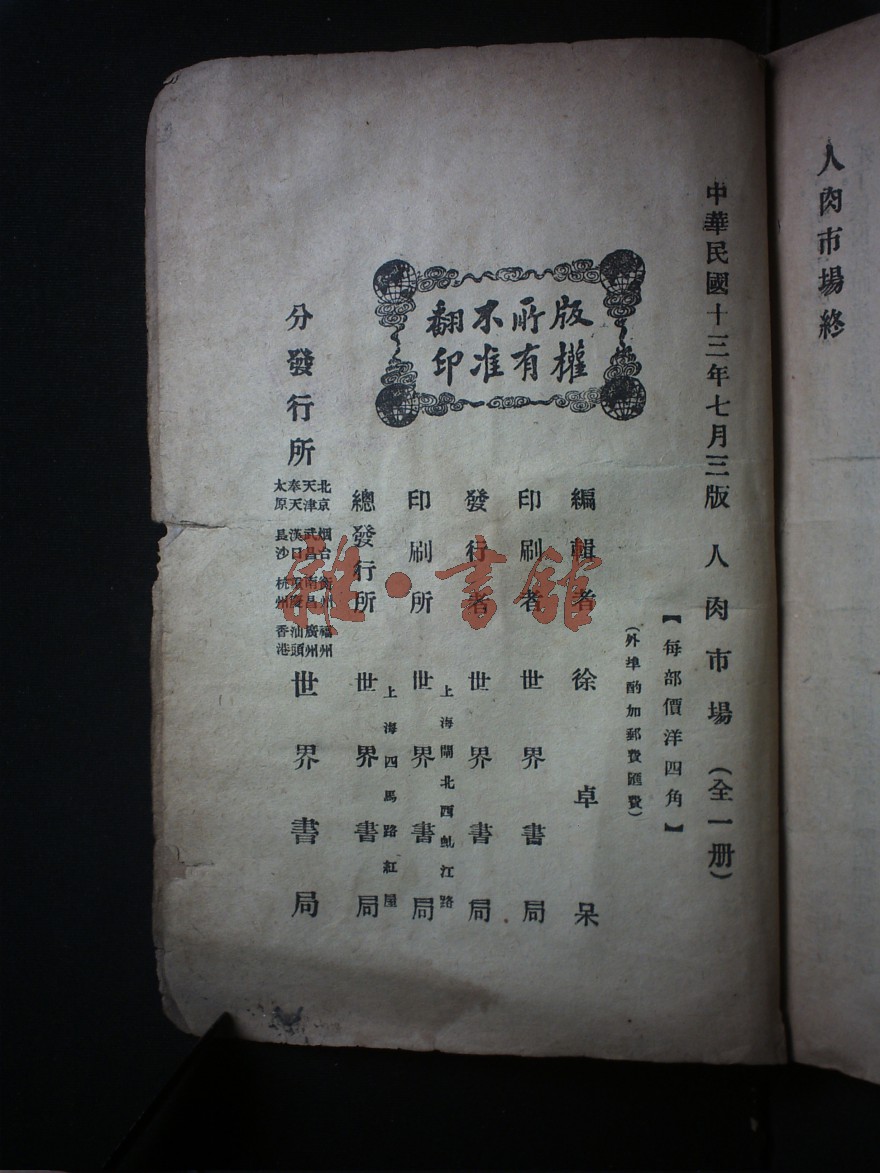 人肉市場終
中華民國十三年七月三版
人肉市場（全一册）
【每部價洋四角】
（外埠酌加郵費匯費）
版權
所有
不准
翻印
編輯者 徐卓呆
印刷者 世界書局
發行者 世界書局
印刷所 上海閘北西虬江路 世界書局
總發行所 上海四馬路紅屋 世界書局
分發行所
北京 烟台 州 福州
天津 武昌 南昌 廣州
奉天 漢口 重慶 汕頭
太原 長沙 杭州 香港
世界書局
雜·書館